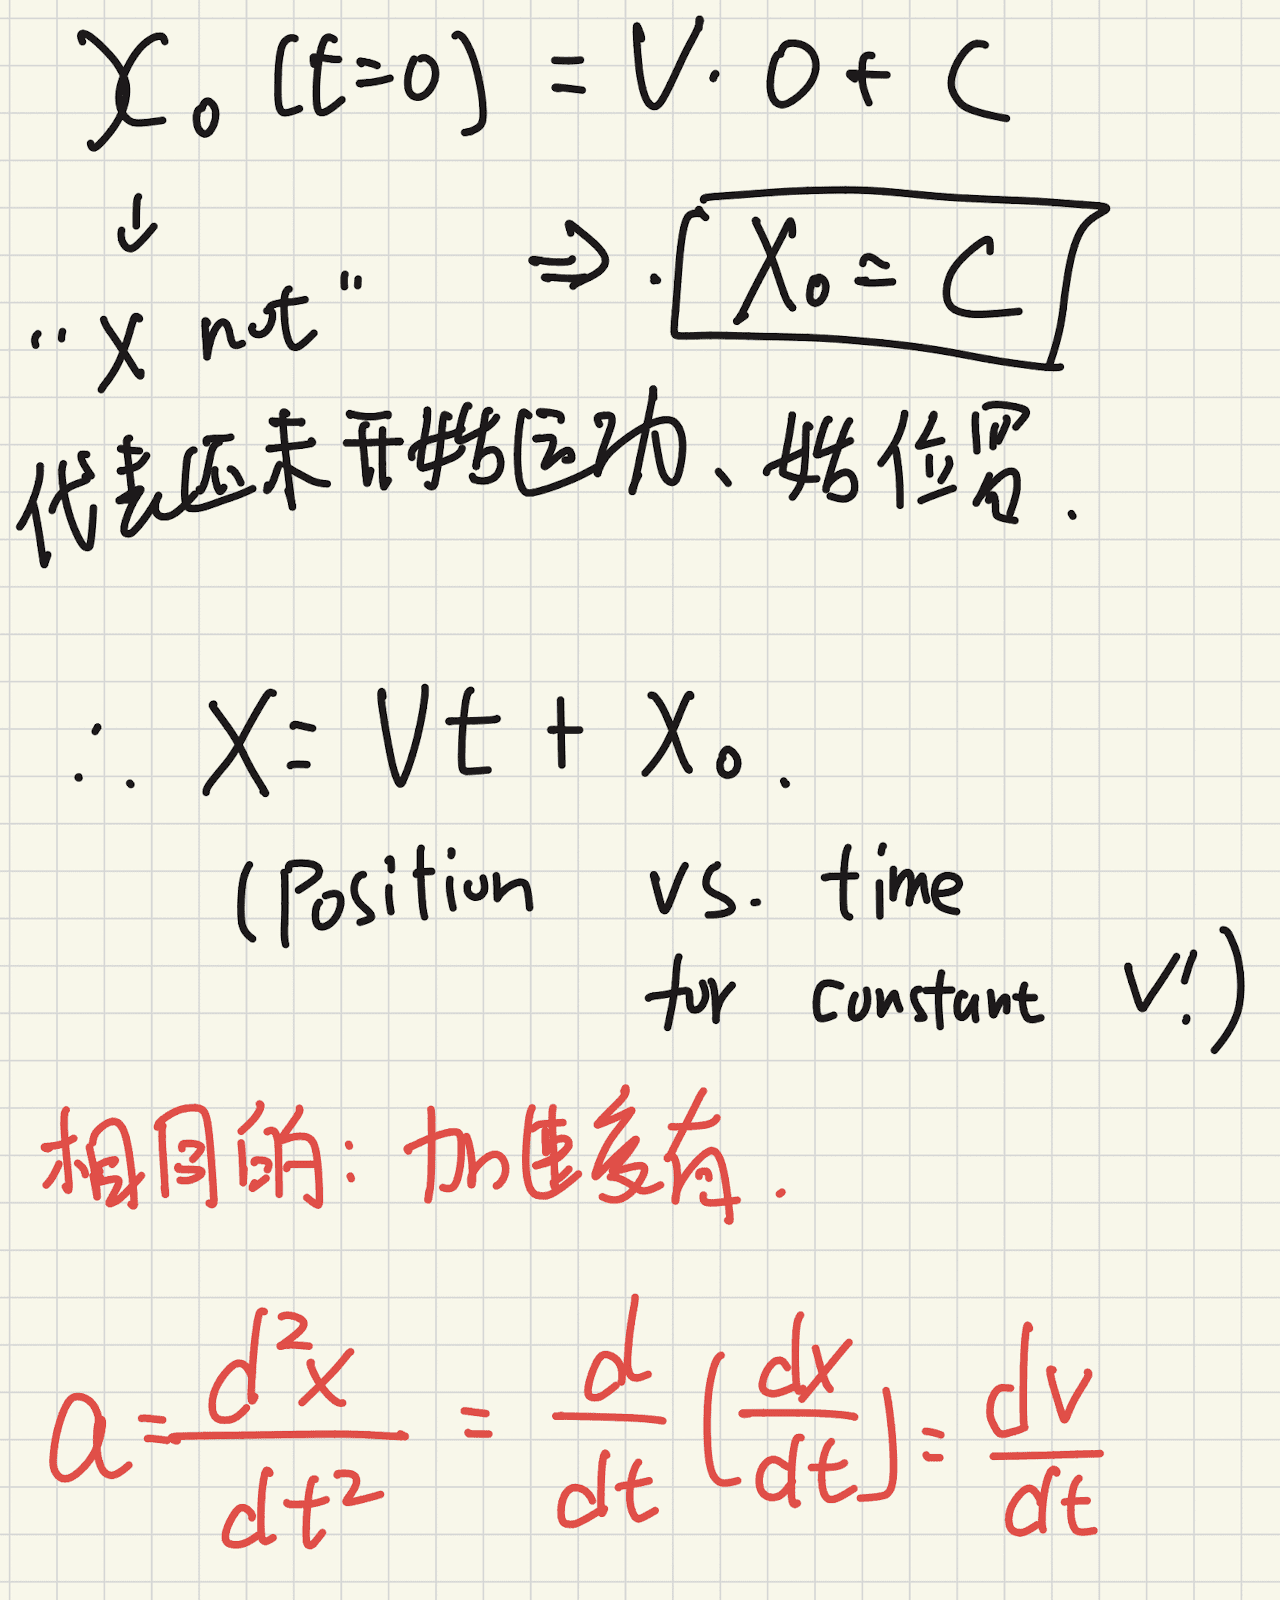 x₀ (t=0) = V · 0 + C
↓
"x not" ⇒ . x₀ = C
代表还未开始运动、始位置.
∴ x = Vt + x₀.
(Position vs. time
for constant V!)
相同的: 加速度有.
a = d²x/dt² = d/dt (dx/dt) = dv/dt